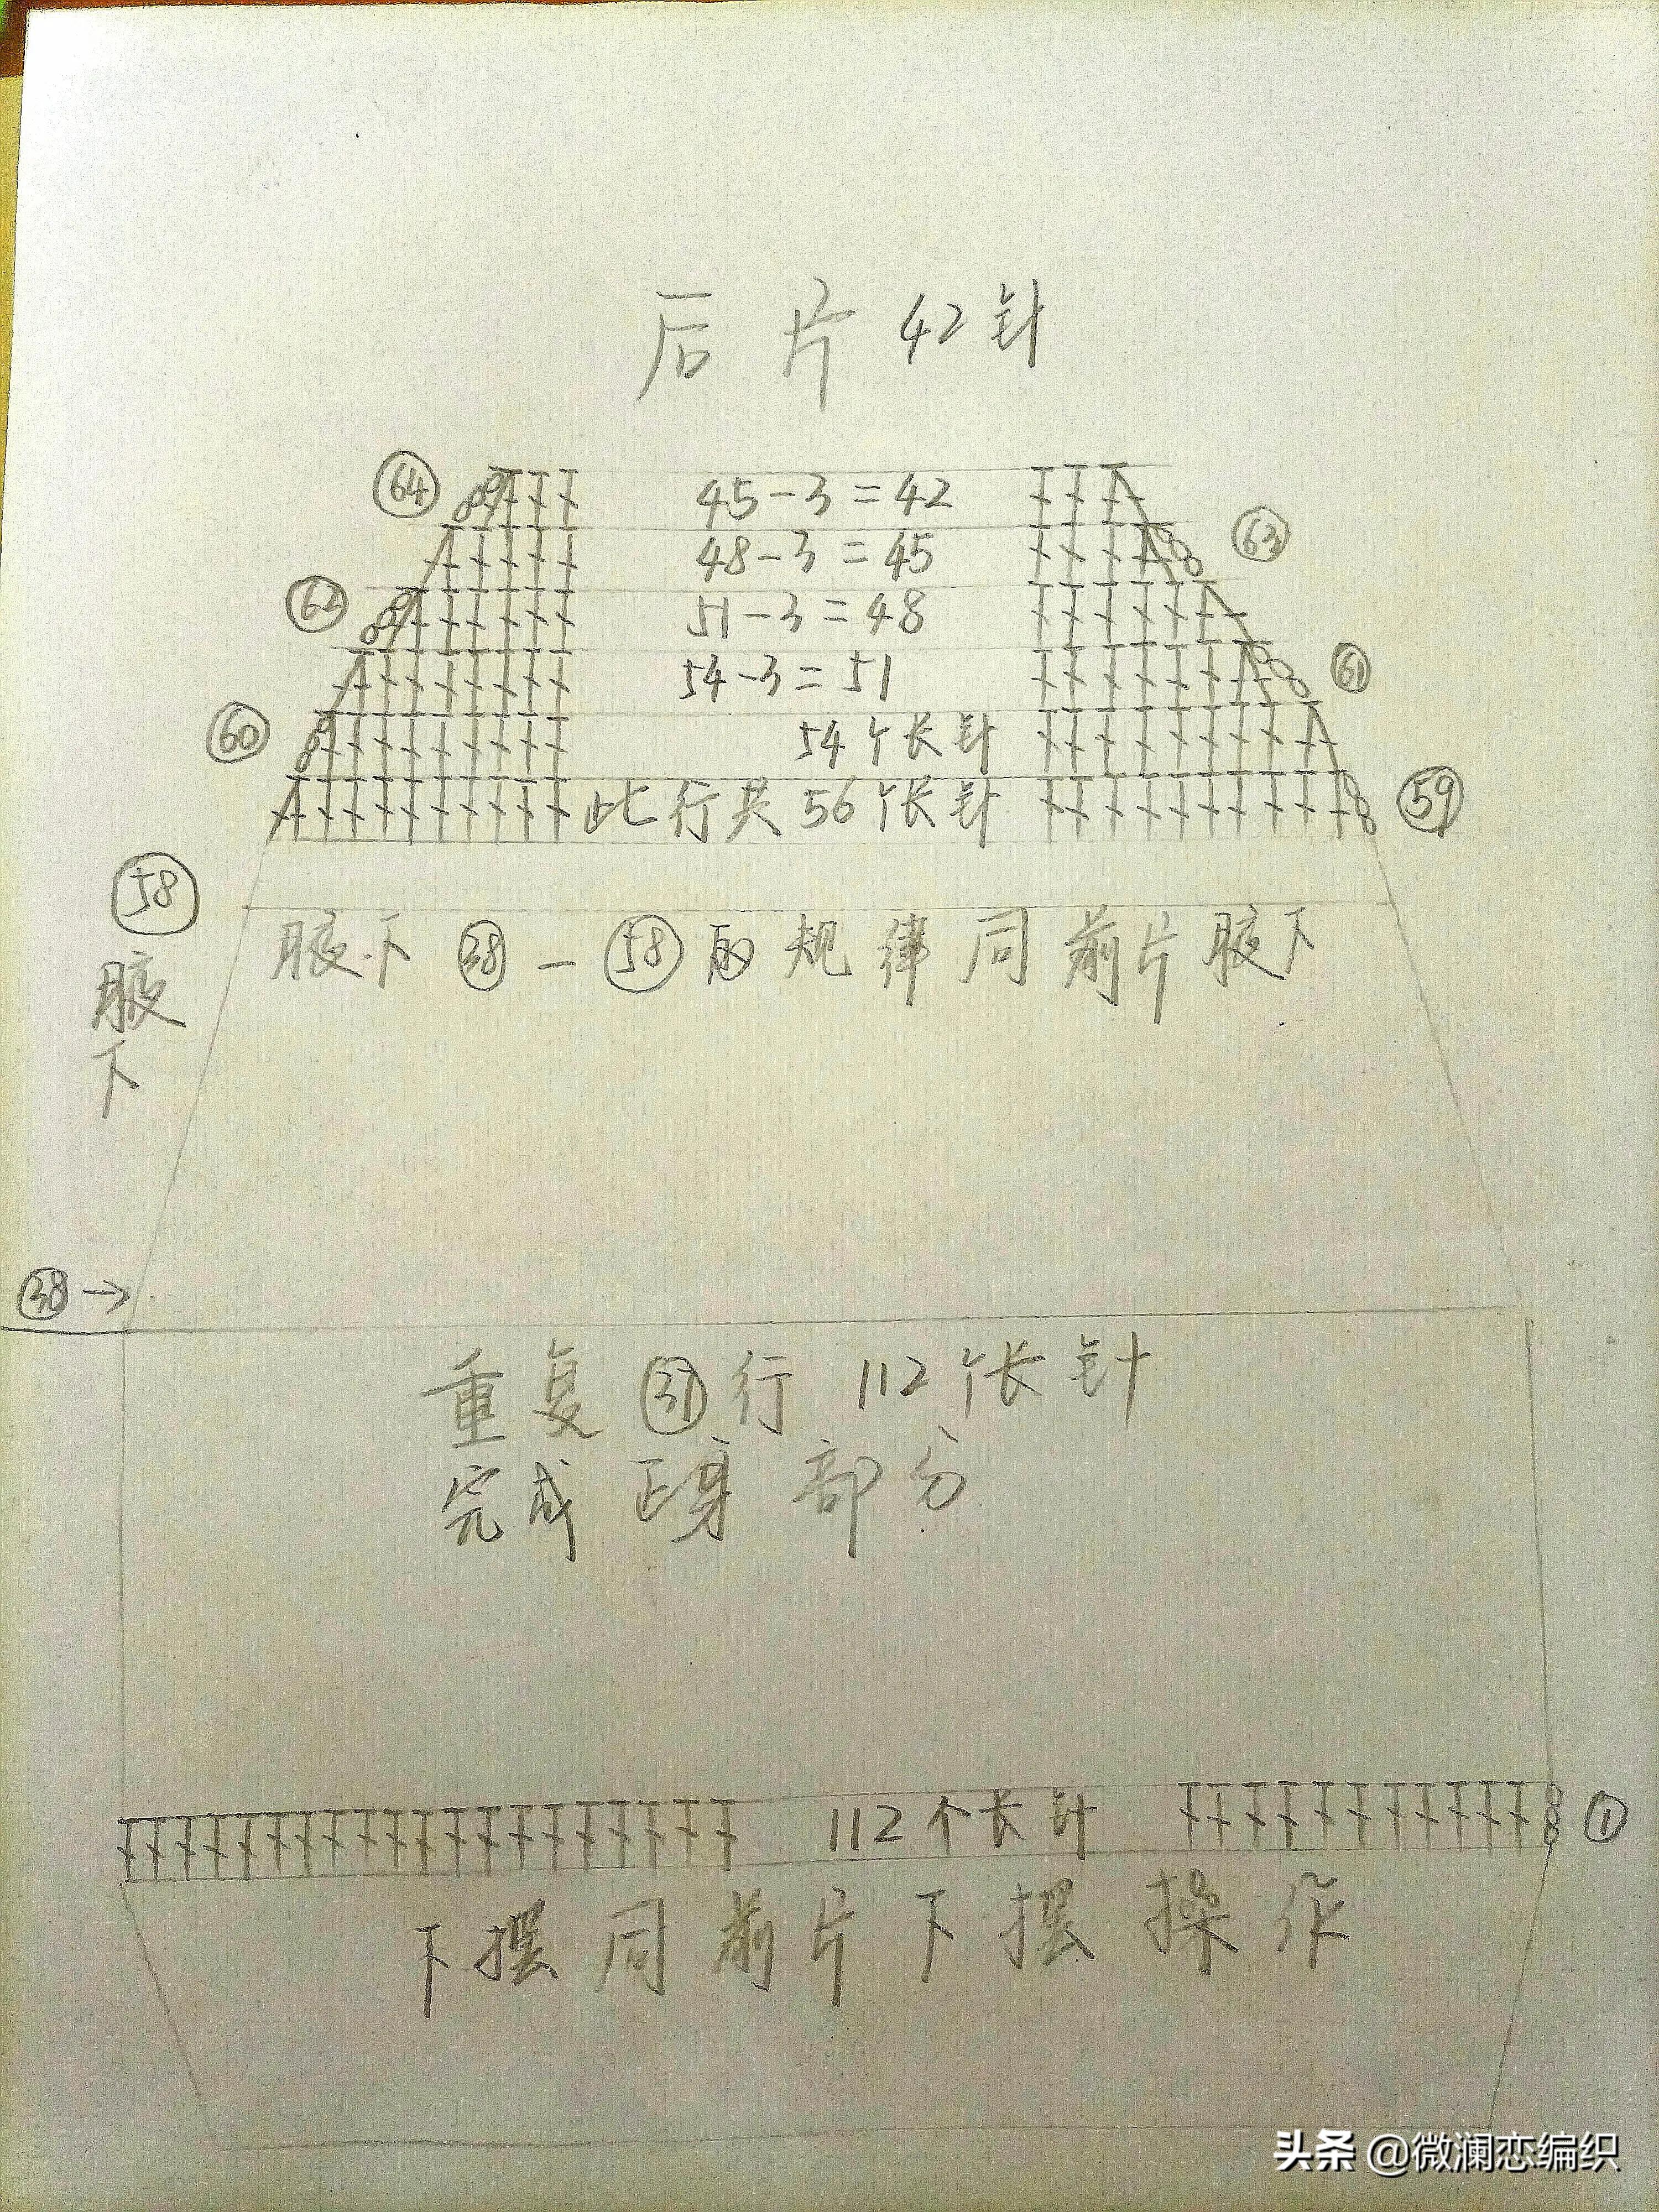 后片 42针
64 45-3=42
48-3=45 63
62 51-3=48
54-3=51 61
60 54个长针
此行共56个长针 59
58 腋下
腋下 38-58的规律同前片腋下
38→
重复37行 112个长针
完成正身部分
112个长针 1
下摆同前片下摆操作
头条 @微澜恋编织